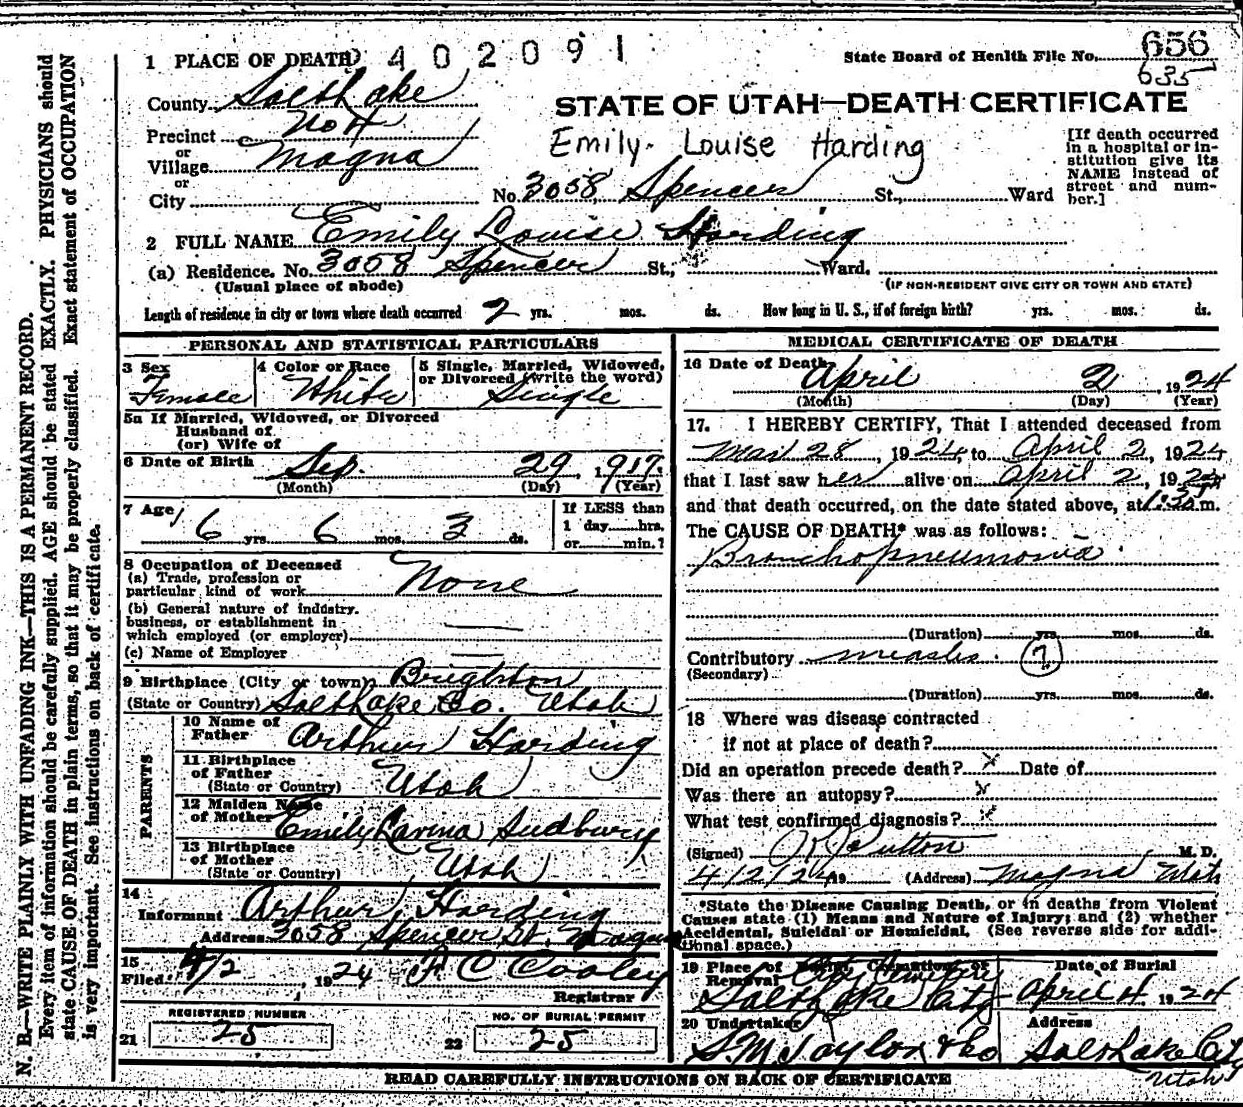 1 PLACE OF DEATH 402091
State Board of Health File No. 656
635
County Salt Lake
STATE OF UTAH—DEATH CERTIFICATE
Precinct No 4
or
Village Magna
or
City
Emily Louise Harding
[If death occurred in a hospital or institution give its NAME instead of street and number.]
No. 3058 Spencer St., Ward
2 FULL NAME Emily Louise Harding
(a) Residence. No. 3058 Spencer St., Ward.
(Usual place of abode) (IF NON-RESIDENT GIVE CITY OR TOWN AND STATE)
Length of residence in city or town where death occurred 2 yrs. mos. ds. How long in U. S., if of foreign birth? yrs. mos. ds.
PERSONAL AND STATISTICAL PARTICULARS
3 Sex 4 Color or Race 5 Single, Married, Widowed,
or Divorced (write the word)
Female White Single
5a If Married, Widowed, or Divorced
Husband of
(or) Wife of
6 Date of Birth Sep. 29, 1917.
(Month) (Day) (Year)
7 Age 6 yrs. 6 mos. 3 ds.
If LESS than
1 day hrs.
or min.?
8 Occupation of Deceased
(a) Trade, profession or
particular kind of work None
(b) General nature of industry.
business, or establishment in
which employed (or employer)
(c) Name of Employer
9 Birthplace (City or town) Brighton
(State or Country) Salt Lake Co. Utah
PARENTS
10 Name of
Father Arthur Harding
11 Birthplace
of Father
(State or Country) Utah
12 Maiden Name
of Mother Emily Sudbury
13 Birthplace
of Mother
(State or Country) Utah
14
Informant Arthur Harding
Address 3058 Spencer St. Magna
15
Filed 4/2, 1924 F C Cooley
Registrar
REGISTERED NUMBER NO. OF BURIAL PERMIT
21 25 22 25
MEDICAL CERTIFICATE OF DEATH
16 Date of Death April 2, 1924
(Month) (Day) (Year)
17. I HEREBY CERTIFY, That I attended deceased from
Mar 28, 1924, to April 2, 1924
that I last saw her alive on April 2, 1924
and that death occurred, on the date stated above, at 1:30 m.
The CAUSE OF DEATH* was as follows:
Bronchopneumonia
(Duration) yrs. mos. ds.
Contributory measles. (7)
(Secondary)
(Duration) yrs. mos. ds.
18 Where was disease contracted
if not at place of death?
Did an operation precede death? x Date of
Was there an autopsy? x
What test confirmed diagnosis? x
(Signed) M. D.
4/2/24 19 (Address) Magna Utah
*State the Disease Causing Death, or in deaths from Violent
Causes state (1) Means and Nature of Injury; and (2) whether
Accidental, Suicidal or Homicidal. (See reverse side for addi-
tional space.)
19 Place of Burial, Cremation, or Removal City Cemetery
Date of Burial
Salt Lake City April 4, 1924
20 Undertaker Address
S.M. Taylor & Co Salt Lake City
Utah
READ CAREFULLY INSTRUCTIONS ON BACK OF CERTIFICATE
N. B.—WRITE PLAINLY WITH UNFADING INK—THIS IS A PERMANENT RECORD.
Every item of information should be carefully supplied. AGE should be stated EXACTLY. PHYSICIANS should
state CAUSE OF DEATH in plain terms, so that it may be properly classified. Exact statement of OCCUPATION
is very important. See instructions on back of certificate.